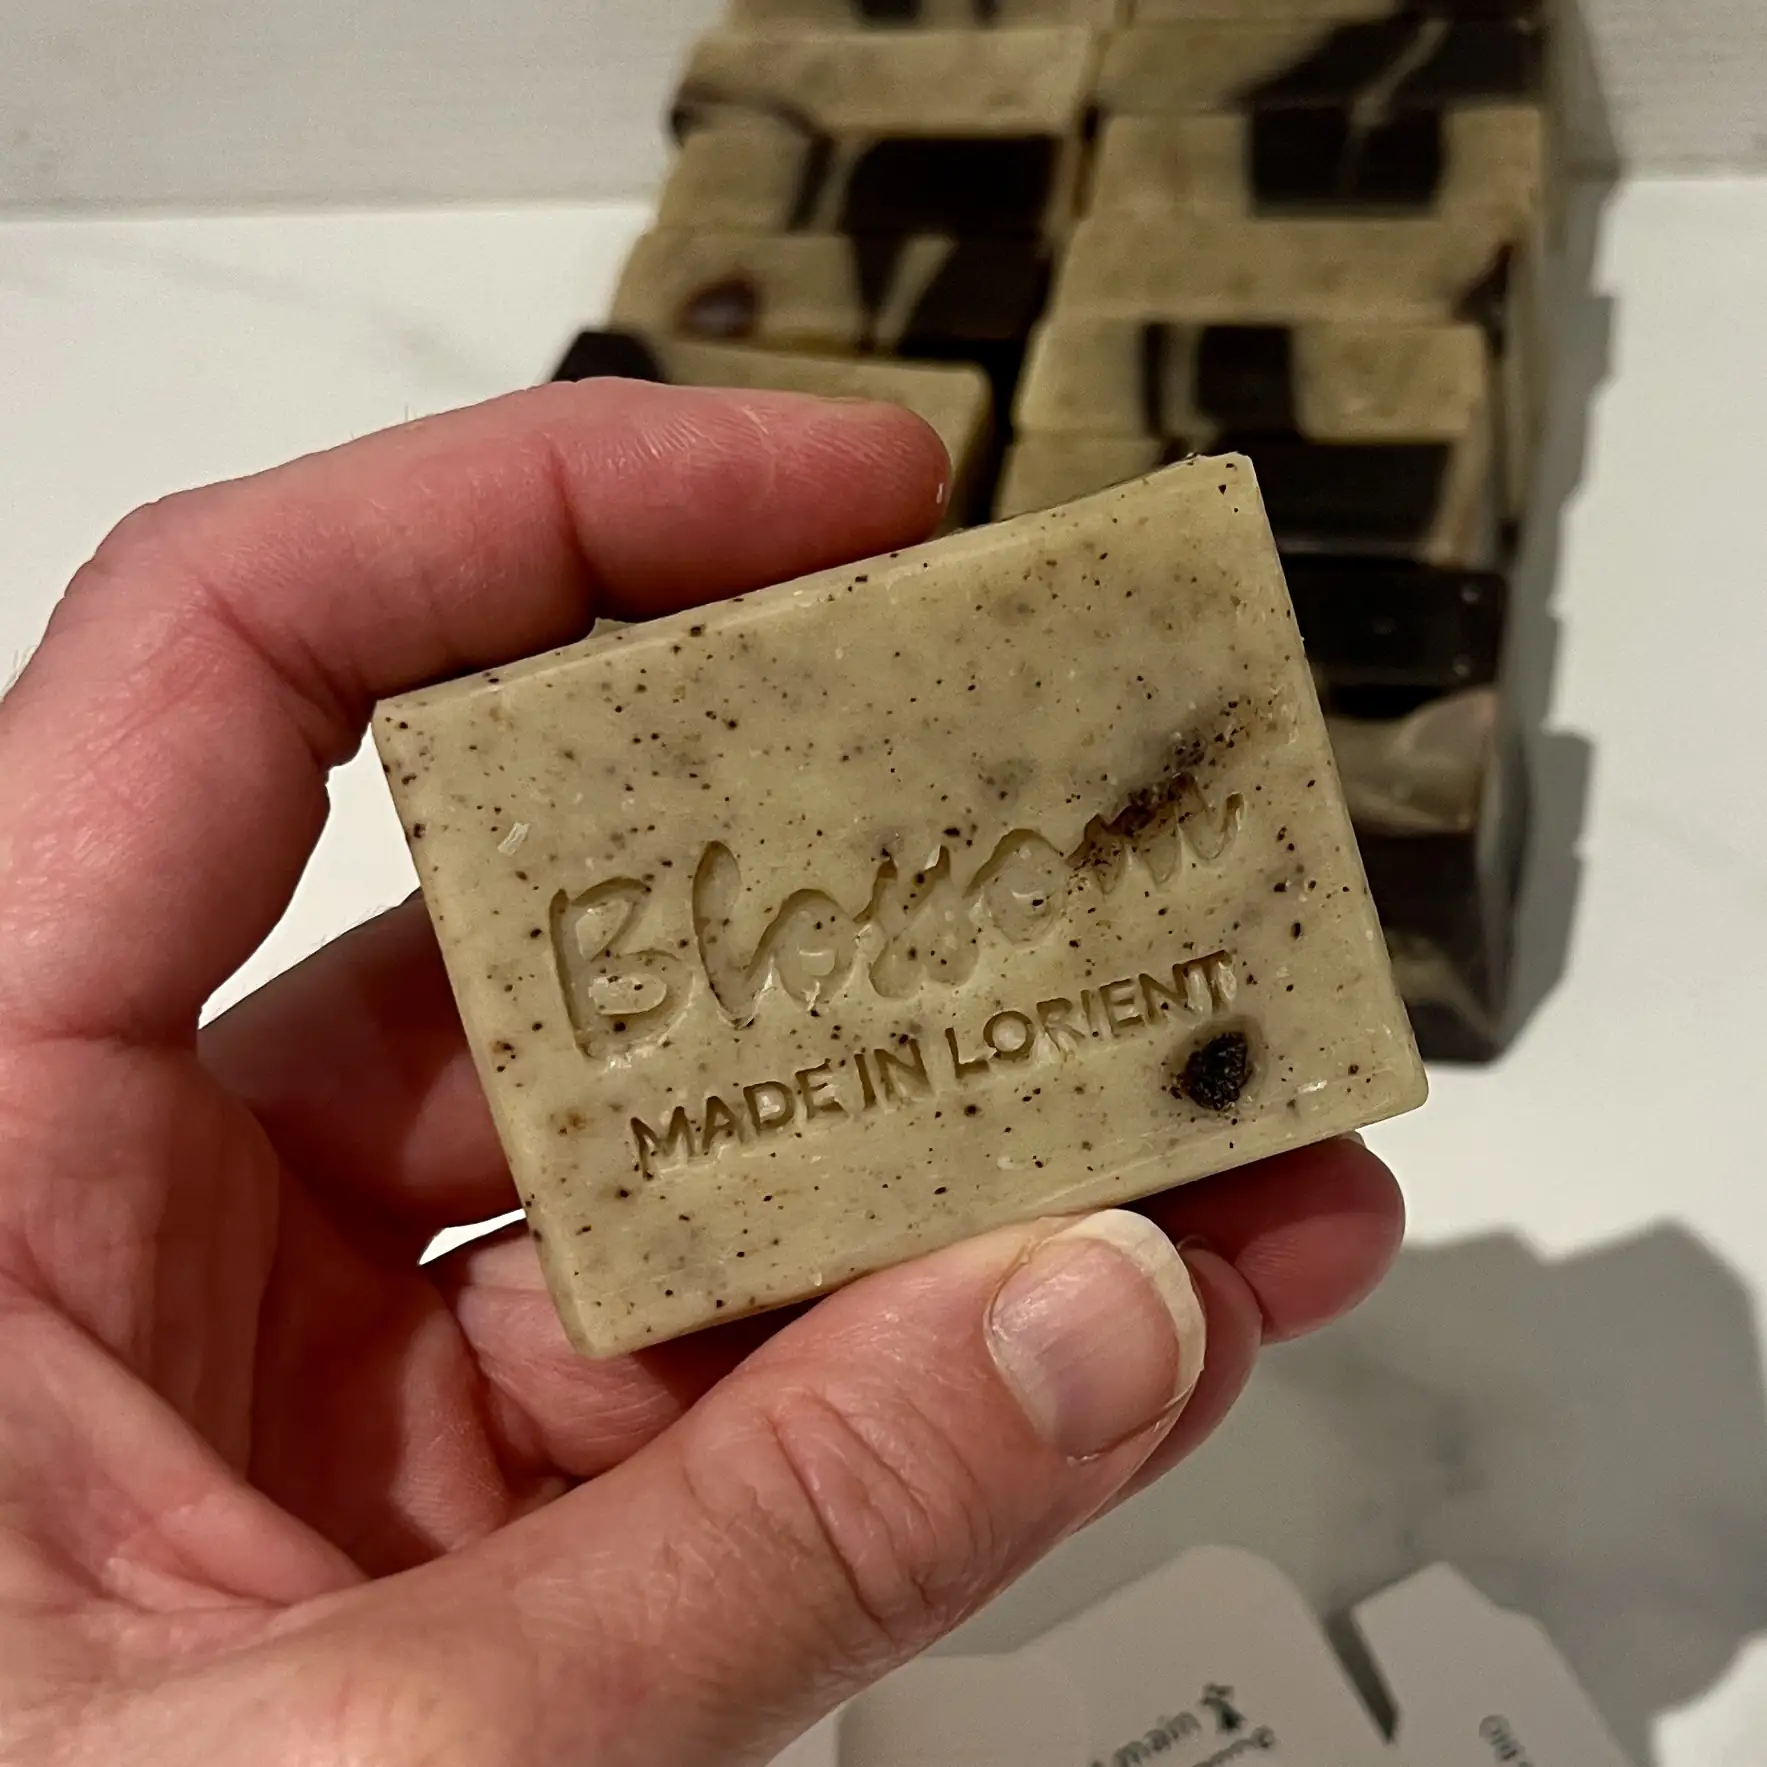 Blossom
MADE IN LORIENT
main